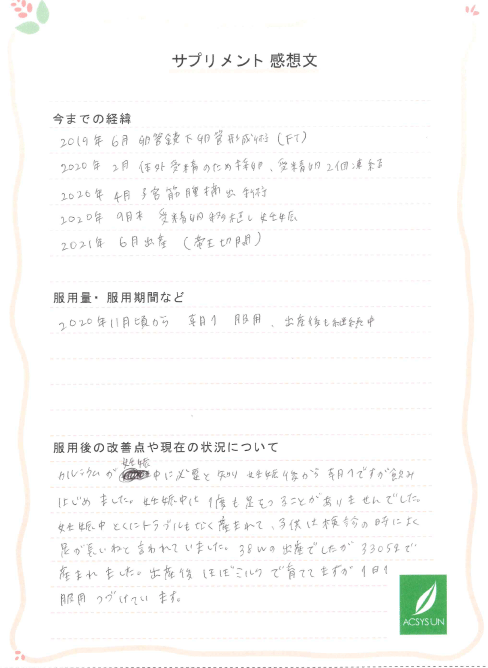 サプリメント 感想文
今までの経緯
2019年 6月 卵管鏡下卵管形成術 (FT)
2020年 2月 体外受精のため採卵、受精卵2個凍結
2020年 4月 子宮筋腫摘出手術
2020年 9月末 受精卵移植し妊娠
2021年 6月出産 (帝王切開)
服用量・服用期間など
2020年11月頃から 朝1 服用、出産後も継続中
服用後の改善点や現在の状況について
妊娠
カルシウムが 中に必要と知り妊娠後から朝1ですが飲み
はじめました。妊娠中は1度も足をつることがありませんでした。
妊娠中とくにトラブルもなく産まれて、子供は検診の時によく
足が長いねと言われていました。38wの出産でしたが3305gで
産まれました。出産後ほぼミルクで育ててますが1日1
服用つづけています。
ACSYSUN